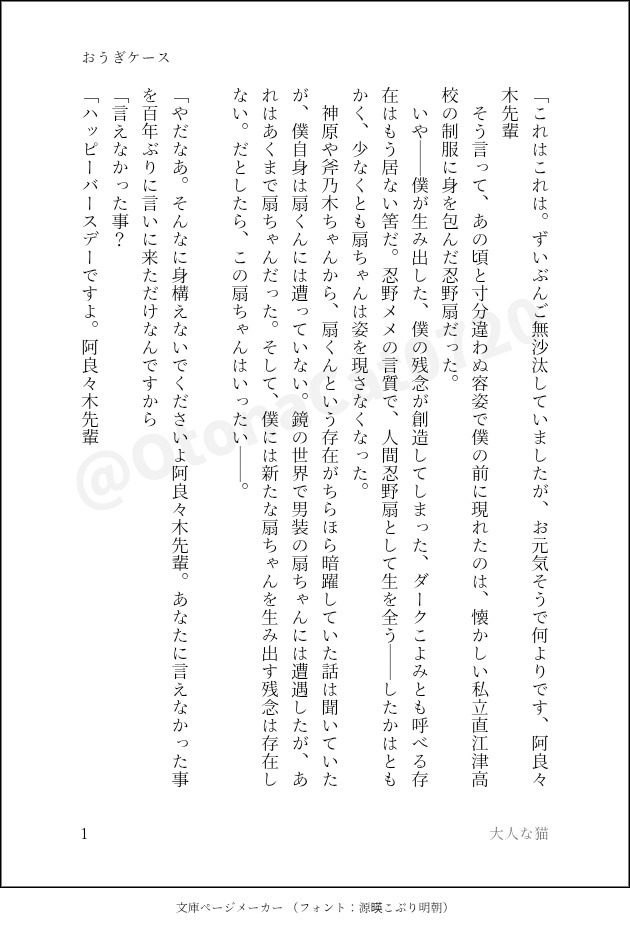 おうぎケース
「これはこれは。ずいぶんご無沙汰していましたが、お元気そうで何よりです、阿良々
木先輩
そう言って、あの頃と寸分違わぬ容姿で僕の前に現れたのは、懐かしい私立直江津高
校の制服に身を包んだ忍野扇だった。
いや――僕が生み出した、僕の残念が創造してしまった、ダークこよみとも呼べる存
在はもう居ない筈だ。忍野メメの言質で、人間忍野扇として生を全う――したかはとも
かく、少なくとも扇ちゃんは姿を現さなくなった。
神原や斧乃木ちゃんから、扇くんという存在がちらほら暗躍していた話は聞いていた
が、僕自身は扇くんには遭っていない。鏡の世界で男装の扇ちゃんには遭遇したが、あ
れはあくまで扇ちゃんだった。そして、僕には新たな扇ちゃんを生み出す残念は存在し
ない。だとしたら、この扇ちゃんはいったい――。
「やだなあ。そんなに身構えないでくださいよ阿良々木先輩。あなたに言えなかった事
を百年ぶりに言いに来ただけなんですから
「言えなかった事？
「ハッピーバースデーですよ。阿良々木先輩
@Otonacat0720
1
大人な猫
文庫ページメーカー（フォント：源暎こぶり明朝）